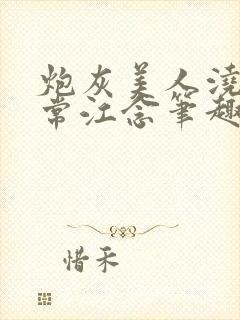 炮灰美人渣
常江念笔趣
惜禾